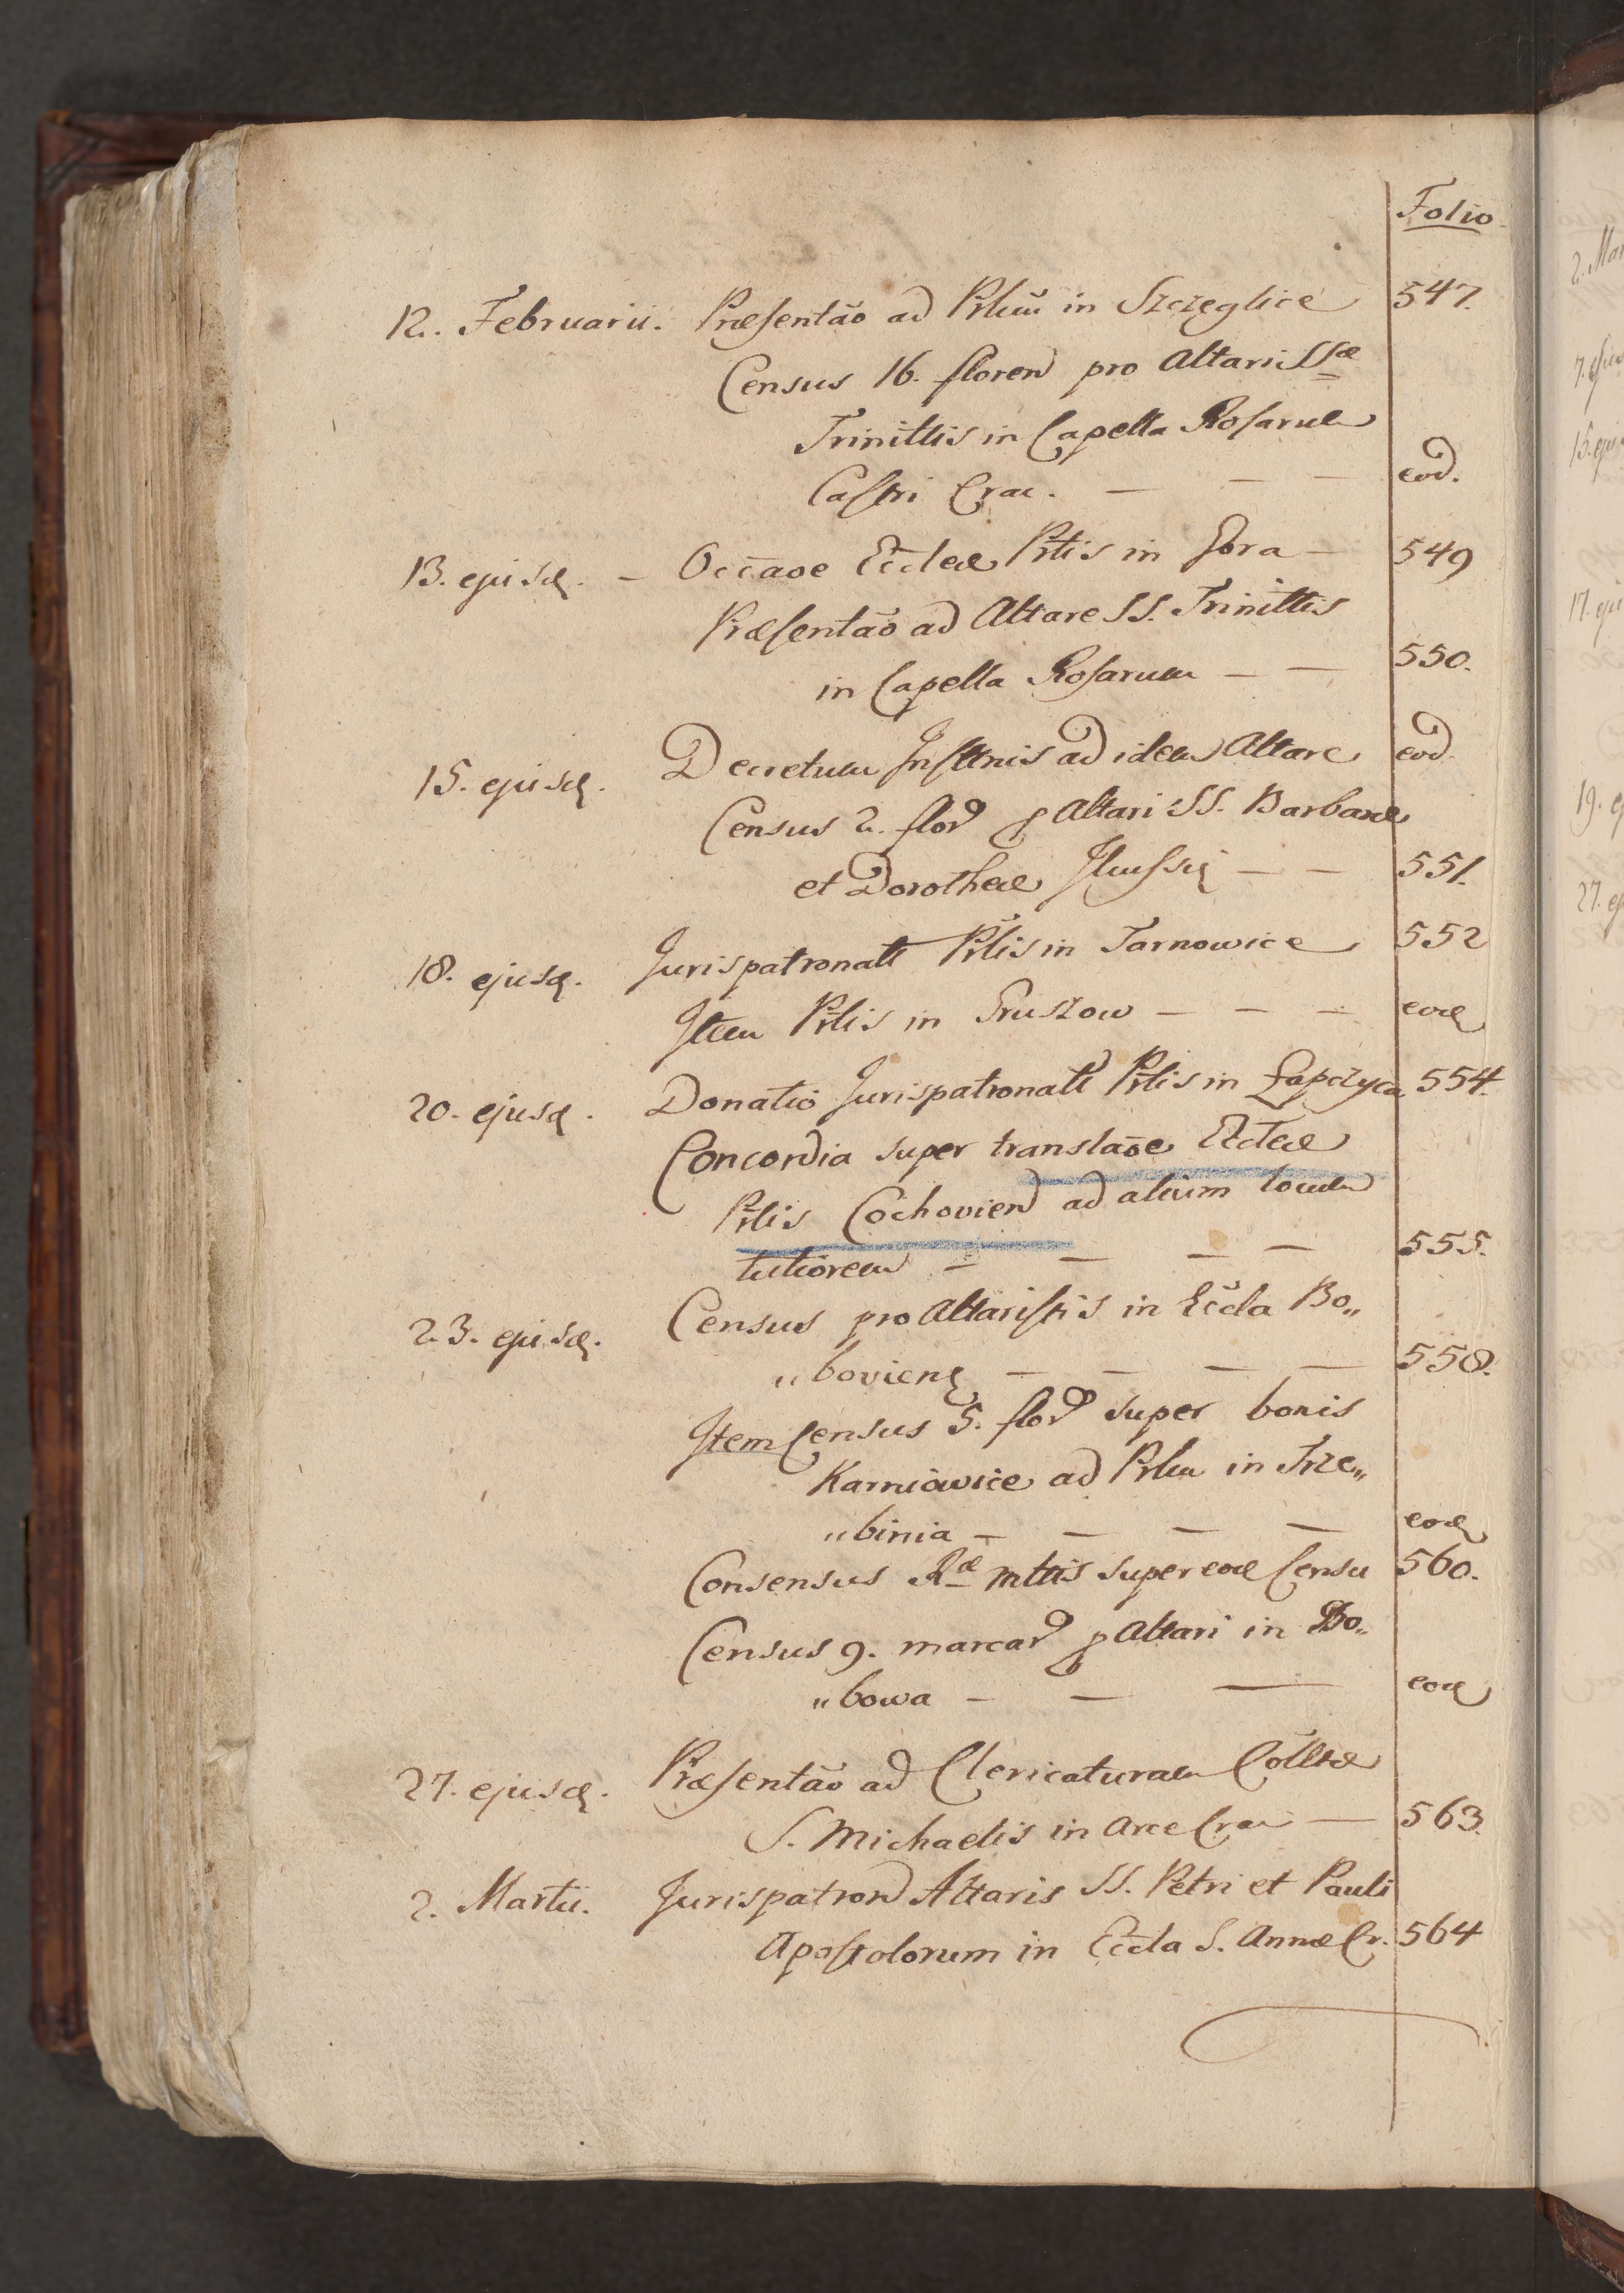 Folio
12. Februarii. Præsentão ad Prlem in Szczeglice 547.
Census 16. floren pro Altari SSæ
Trinittis in Capella Rosarum
Castri Crac. — — — eod.
13. ejusd. — Occãoe Ecclæ Prlis in Gora — 549
Præsentão ad Altare SS. Trinittis
in Capella Rosarum — — 550.
15. ejusd. Decretum Insttnis ad idem Altare eod.
Census 2. flor p Altari SS. Barbaræ
et Dorotheæ — — 551.
18. ejusd. Jurispatronatt Prlis in Tarnowice 552
Item Prlis in Gruszow — — — eod
20. ejusd. Donatio Jurispatronatt Prlis in Łapczyca 554.
Concordia super translãoe Ecclæ
Prlis Cochovien ad alium locum
tutiorem — — — — 555.
23. ejusd. Census pro Altaristis in Eccla Bo„
„bovien — — — — 558.
Item Census 5. flor super bonis
Karniowice ad Prlem in Trze„
„binia — — — — eod
Consensus Ræ Mttis super eod Censu 560.
Census 9. marcar p Altari in Bo„
„bowa — — — eod
27. ejusd. Præsentão ad Clericaturam Colltæ
S. Michaelis in Arce Crac — 563.
2. Martii. Jurispatron Altaris SS. Petri et Pauli
Apostolorum in Eccla S. Annæ Cr. 564